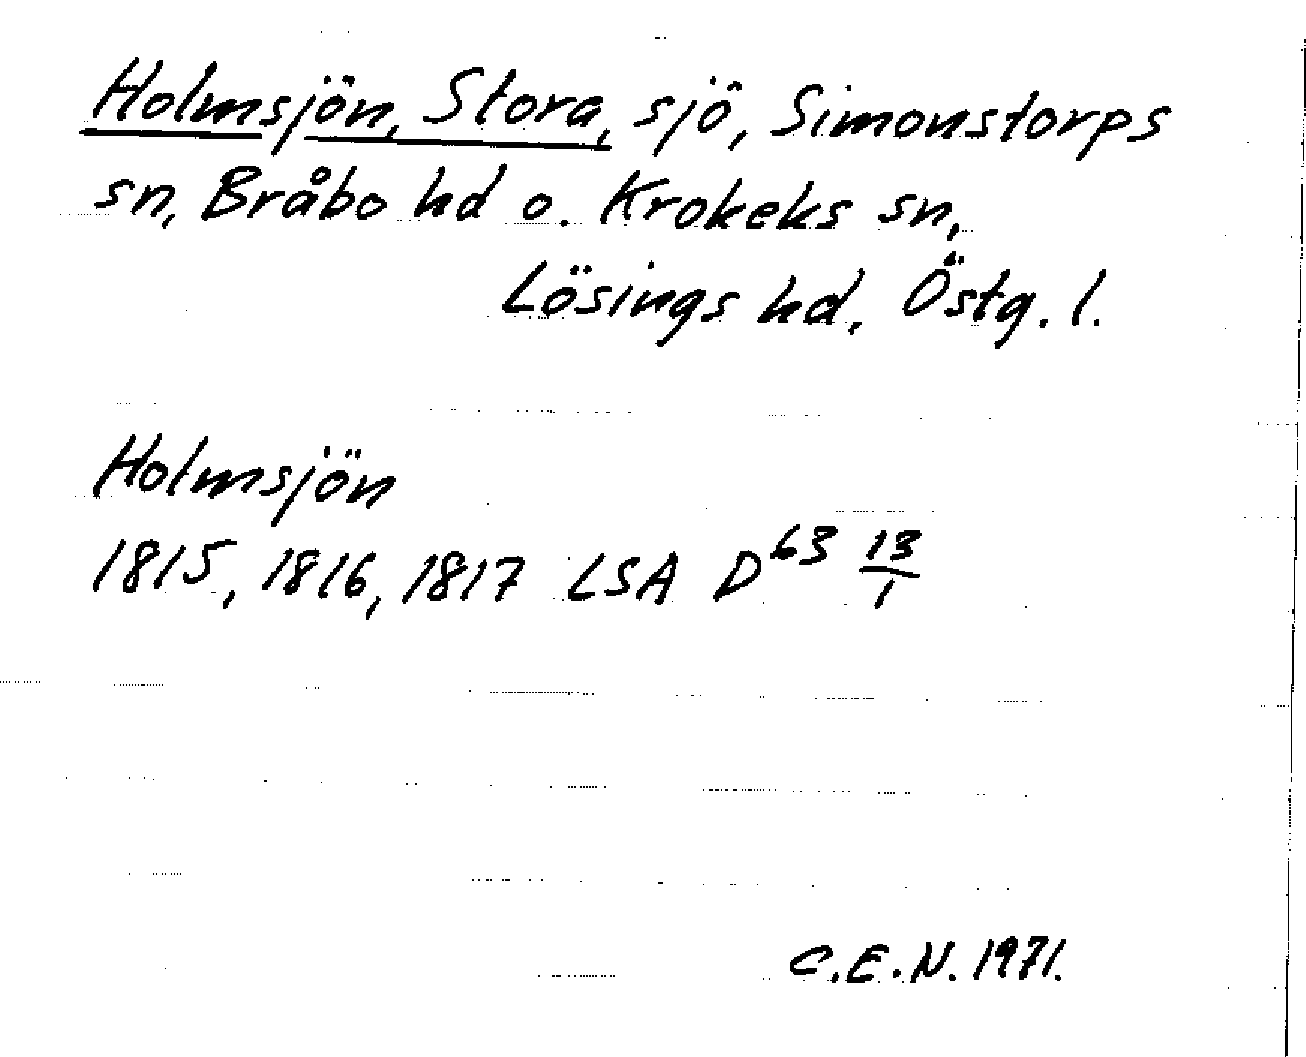 Holmsjön, Stora, sjö, Simonstorps
sn, Bråbo hd o. Krokeks sn,
Lösings hd, Östg. l.
Holmsjön
1815, 1816, 1817 LSA D63 13/1
C.E.N. 1971.